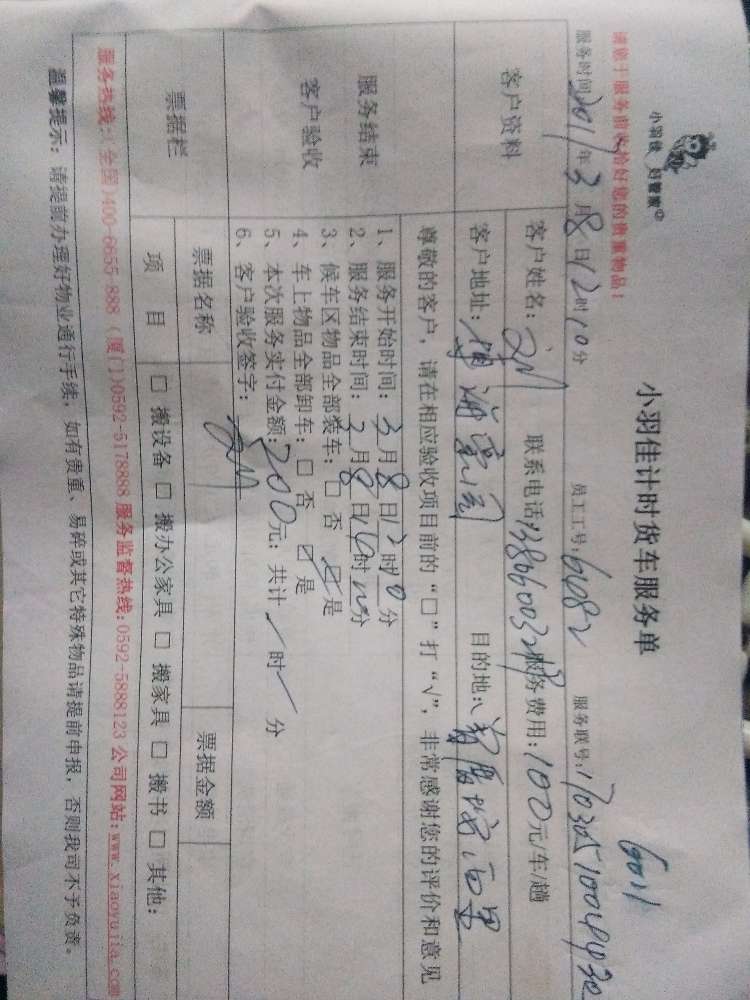 小羽佳 好管家
小羽佳计时货车服务单
6011
请您于服务前收拾好您的贵重物品!
服务时间 2017年3月8日12时10分 员工工号: 6482 服务联号:
客户资料
客户姓名: 联系电话: 服务费用: 100元/车/趟
客户地址: 目的地:
尊敬的客户,请在相应验收项目前的“□”打“√”,非常感谢您的评价和意见
服务结束
客户验收
1、服务开始时间: 3月8日12时10分
2、服务结束时间: 3月8日 时 分
3、候车区物品全部装车: □ 否 ☑ 是
4、车上物品全部卸车: □ 否 ☑ 是
5、本次服务实付金额: 200元; 共计 / 时 / 分
6、客户验收签字:
票据栏
票据名称 票据金额
项 目 □ 搬设备 □ 搬办公家具 □ 搬家具 □ 搬书 □ 其他:
服务热线:(全国)400-6655-888 (厦门)0592-5178888 服务监督热线:0592-5888123 公司网站:www.xiaoyujia.com
温馨提示: 请提前办理好物业通行手续,如有贵重、易碎或其它特殊物品请提前申报,否则我司不予负责。